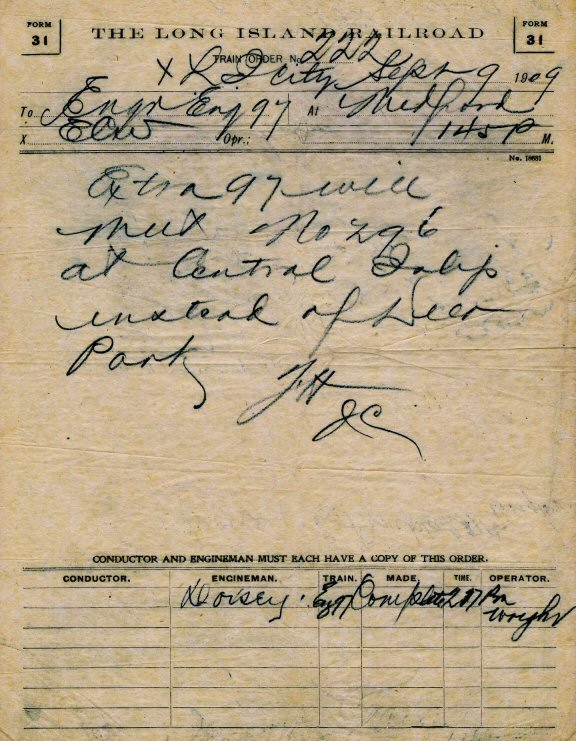 FORM 31
THE LONG ISLAND RAILROAD
FORM 31
TRAIN ORDER No. 222
X L I City Sept 9 1909
To Engr Eng 97 At Medford
X Opr.; 145 P M.
No. 18681
Extra 97 will
meet No 296
at Central Islip
instead of Deer
Park
JC
CONDUCTOR AND ENGINEMAN MUST EACH HAVE A COPY OF THIS ORDER.
CONDUCTOR. ENGINEMAN. TRAIN. MADE. TIME. OPERATOR.
Dorsey. Eng 97 Complete 217 Pm Wright